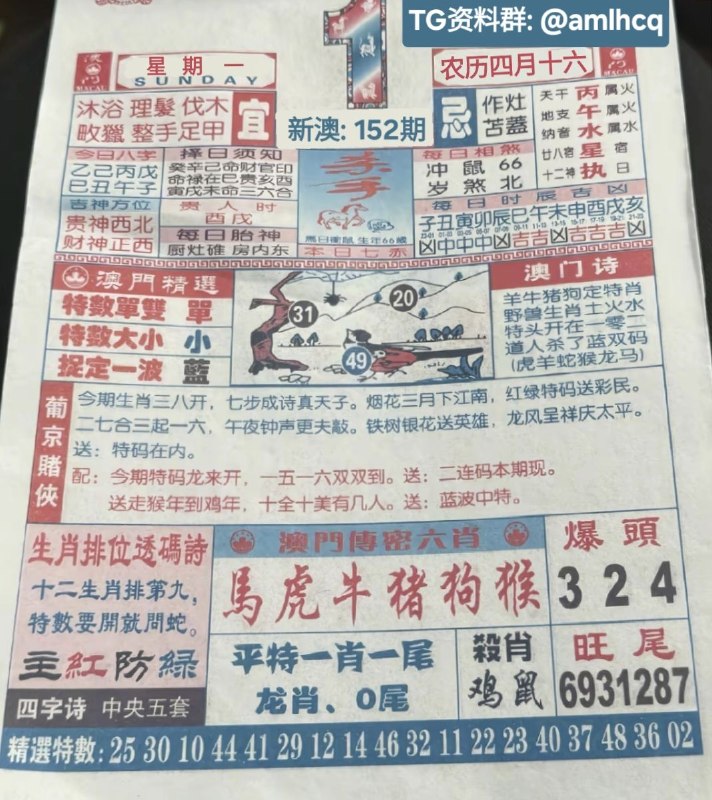 TG资料群: @amlhcq
澳門
MACAU
星期一
SUNDAY
1
农历四月十六
澳門
MACAU
沐浴 理髮 伐木
畋獵 整手足甲
宜
新澳: 152期
忌
作灶
苫蓋
天干 丙 属火
地支 午 属火
纳音 水 属水
廿八宿 星 宿
十二神 执 日
今日八字
乙己丙戊
巳丑午子
择日须知
癸辛己命财官印
命禄在巳贵亥酉
寅戌未命三六合
吉神方位
贵神西北
财神正西
贵人时
酉戌
每日胎神
厨灶碓 房内东
馬日衝鼠 生年66歲
本日七赤
每日相煞
冲鼠66
岁煞北
每日时辰吉凶
子丑寅卯辰巳午未申酉戌亥
凶中中中凶吉吉凶吉吉凶凶
澳門精選
特數單雙 單
特數大小 小
捉定一波 藍
31
20
49
澳门诗
羊牛猪狗定特肖
野兽生肖土火水
特头开在一零二
道人杀了蓝双码
(虎羊蛇猴龙马)
葡京賭俠
今期生肖三八开，七步成诗真天子。烟花三月下江南，红绿特码送彩民。
二七合三起一六，午夜钟声更夫敲。铁树银花送英雄，龙凤呈祥庆太平。
送：特码在内。
配：今期特码龙来开，一五一六双双到。送：二连码本期现。
送走猴年到鸡年，十全十美有几人。送：蓝波中特。
生肖排位透碼詩
十二生肖排第九，
特數要開就問蛇。
主紅防緑
四字诗 中央五套
澳門傳密六肖
馬虎牛猪狗猴
平特一肖一尾
龙肖、0尾
殺肖
鸡鼠
爆頭
3 2 4
旺尾
6931287
精選特數: 25 30 10 44 41 29 12 14 46 32 11 22 23 40 37 48 36 02